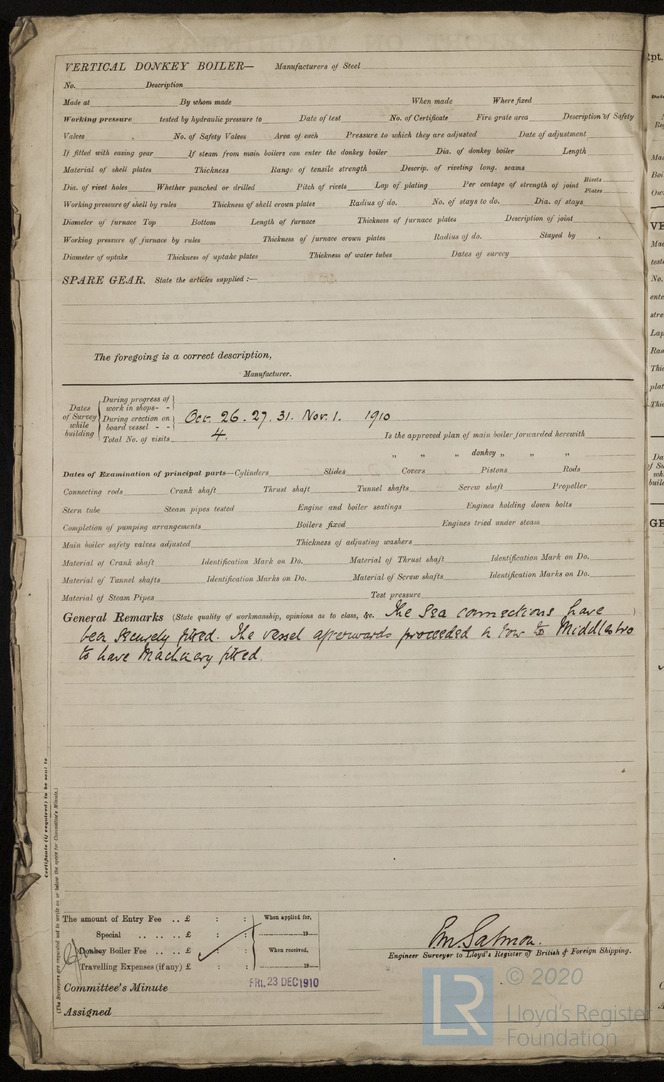 VERTICAL DONKEY BOILER— Manufacturers of Steel
No. Description
Made at By whom made When made Where fixed
Working pressure tested by hydraulic pressure to Date of test No. of Certificate Fire grate area Description of Safety
Valves No. of Safety Valves Area of each Pressure to which they are adjusted Date of adjustment
If fitted with easing gear If steam from main boilers can enter the donkey boiler Dia. of donkey boiler Length
Material of shell plates Thickness Range of tensile strength Descrip. of riveting long. seams
Dia. of rivet holes Whether punched or drilled Pitch of rivets Lap of plating Per centage of strength of joint Rivets Plates
Working pressure of shell by rules Thickness of shell crown plates Radius of do. No. of stays to do. Dia. of stays
Diameter of furnace Top Bottom Length of furnace Thickness of furnace plates Description of joint
Working pressure of furnace by rules Thickness of furnace crown plates Radius of do. Stayed by
Diameter of uptake Thickness of uptake plates Thickness of water tubes Dates of survey
SPARE GEAR. State the articles supplied :—
The foregoing is a correct description,
Manufacturer.
Dates of Survey while building
During progress of work in shops- -
During erection on board vessel - - Oct. 26. 27. 31. Nov. 1. 1910
Total No. of visits 4. Is the approved plan of main boiler forwarded herewith
" " " donkey " " "
Dates of Examination of principal parts—Cylinders Slides Covers Pistons Rods
Connecting rods Crank shaft Thrust shaft Tunnel shafts Screw shaft Propeller
Stern tube Steam pipes tested Engine and boiler seatings Engines holding down bolts
Completion of pumping arrangements Boilers fixed Engines tried under steam
Main boiler safety valves adjusted Thickness of adjusting washers
Material of Crank shaft Identification Mark on Do. Material of Thrust shaft Identification Mark on Do.
Material of Tunnel shafts Identification Marks on Do. Material of Screw shafts Identification Marks on Do.
Material of Steam Pipes Test pressure
General Remarks (State quality of workmanship, opinions as to class, &c. The Sea connections have
been securely fitted. The vessel afterwards proceeded in tow to Middlesbro
to have Machinery fitted.
Certificate (if required) to be sent to
(The Surveyors are requested not to write on or below the space for Committee's Minute.)
The amount of Entry Fee .. £ : : When applied for,
Special .. .. .. £ : : 19
Donkey Boiler Fee .. .. £ : : When received,
Travelling Expenses (if any) £ : : 19
Committee's Minute FRI. 23 DEC 1910
Assigned
Salmon.
Engineer Surveyor to Lloyd's Register of British & Foreign Shipping.
© 2020
LR Lloyd's Register
Foundation